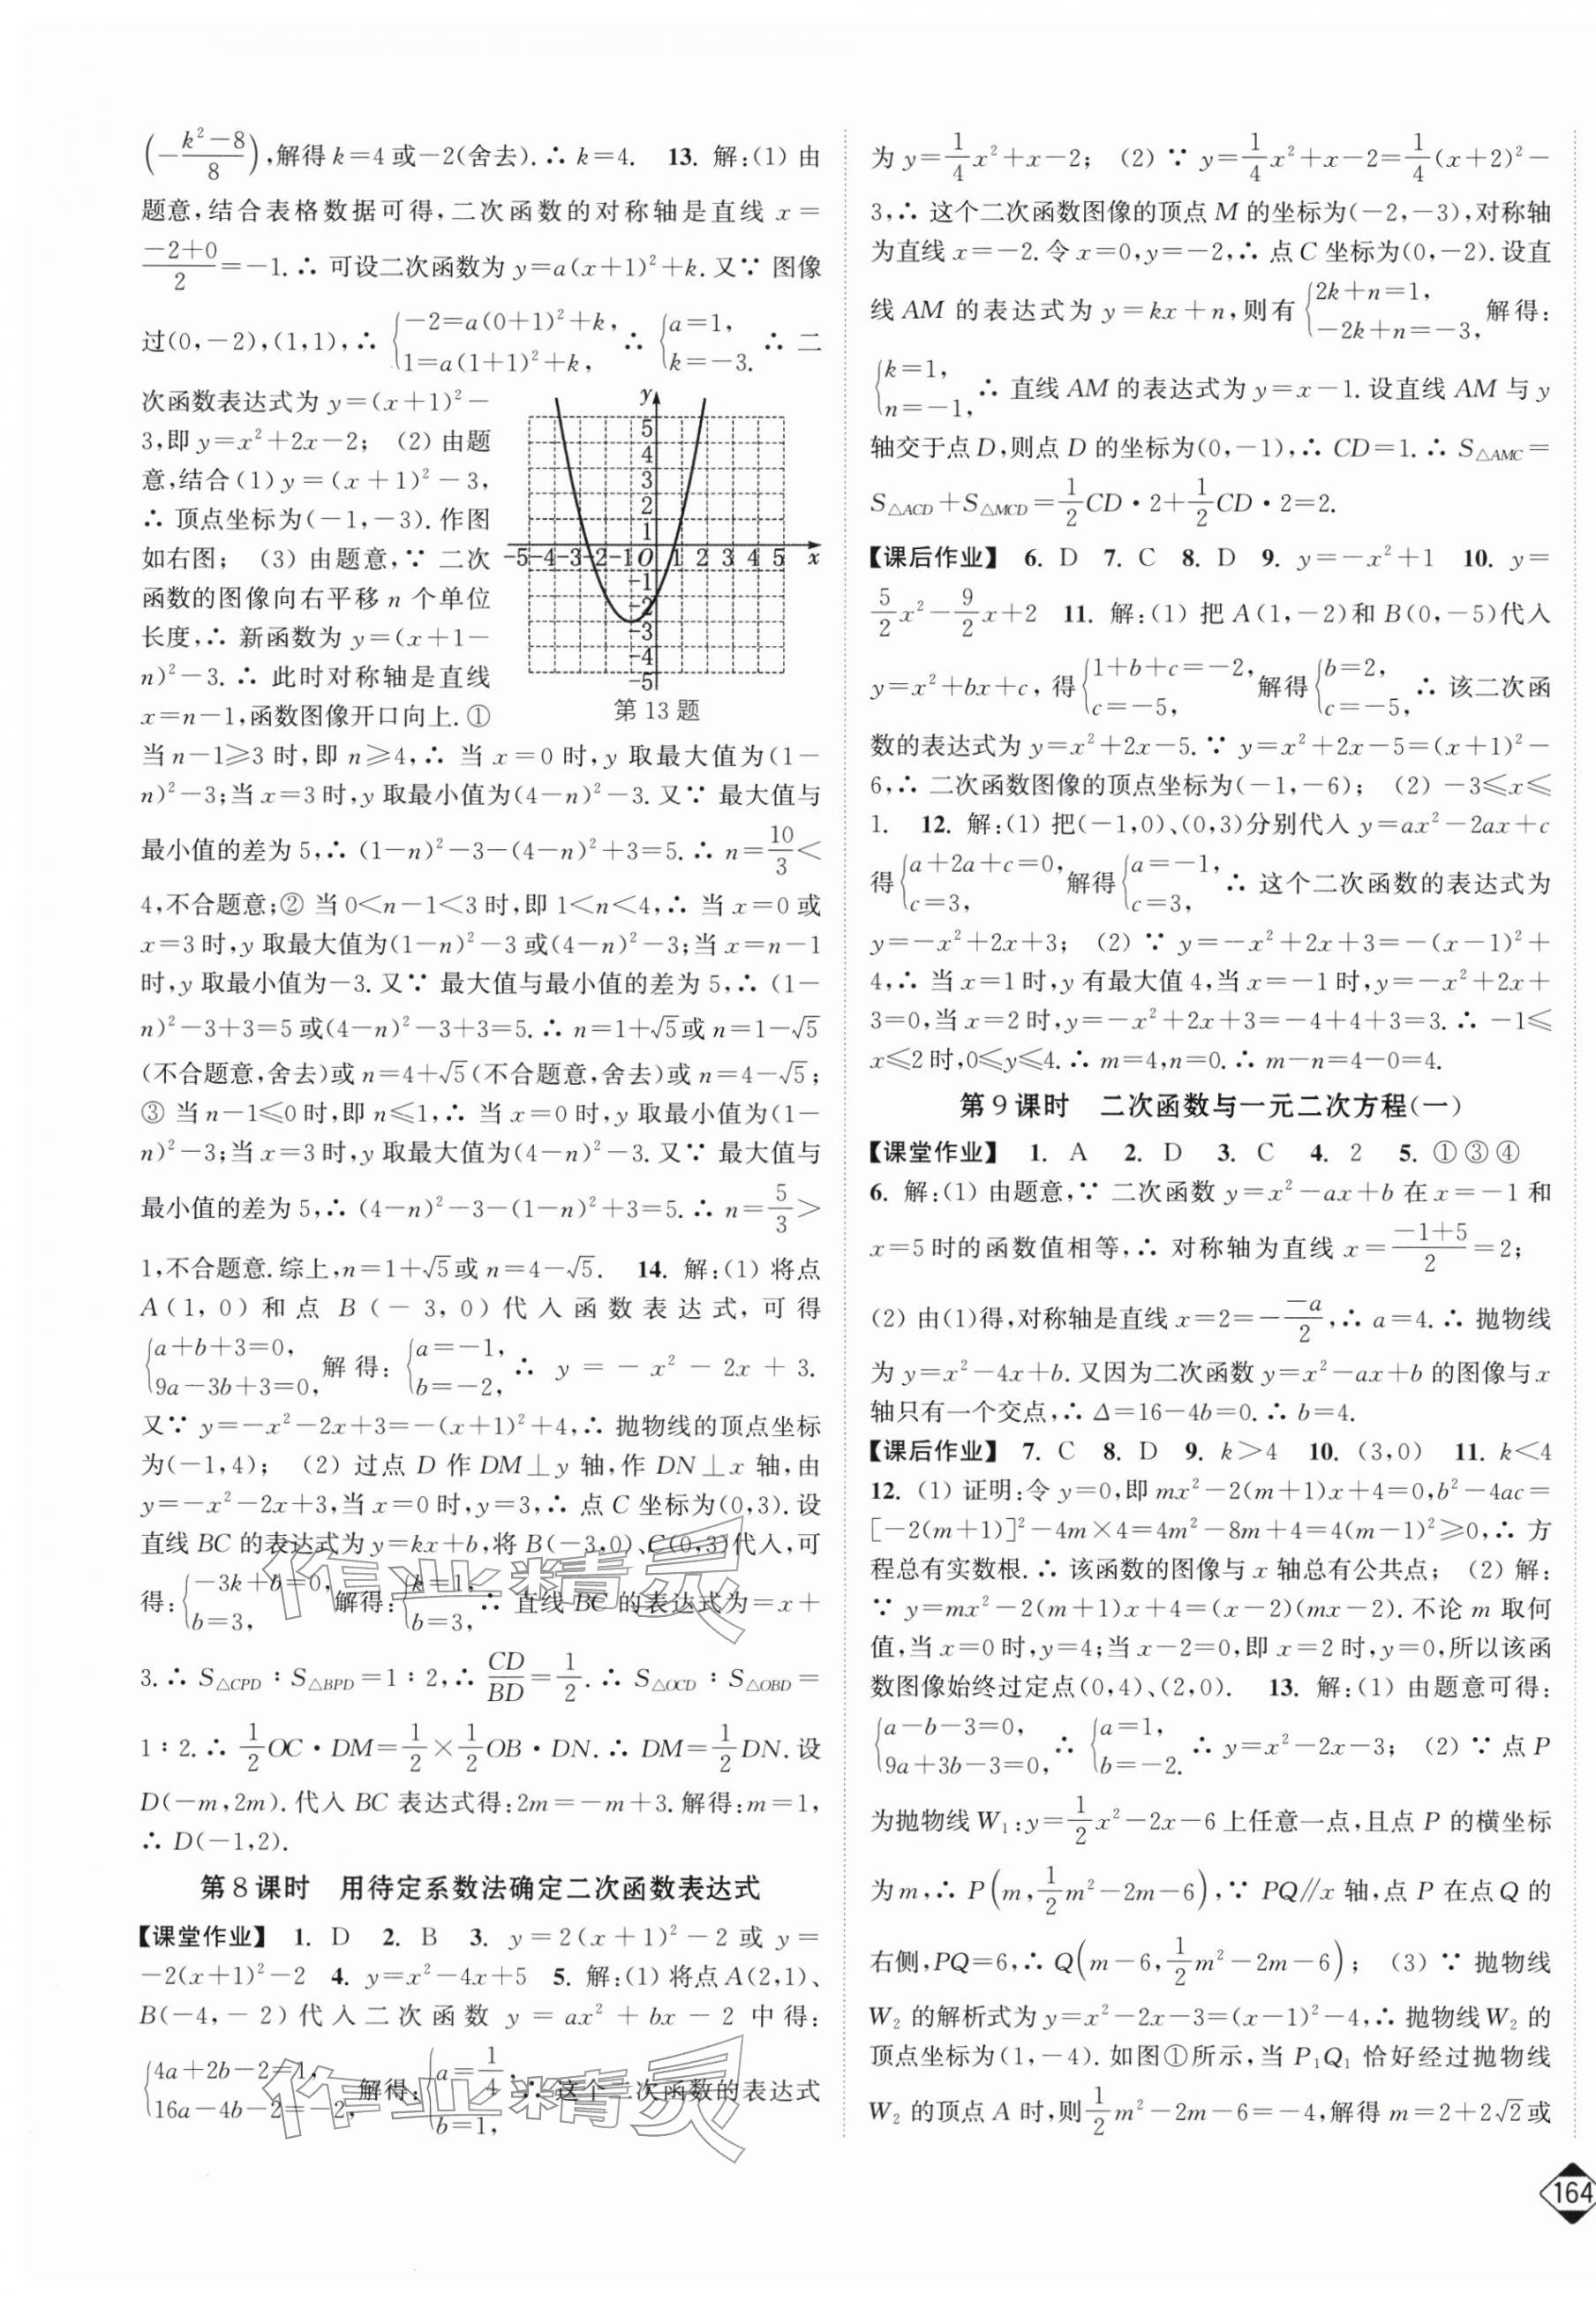 (-\frac{k²-8}{8}),解得k=4或-2(舍去).∴ k=4. 13. 解:(1) 由
题意,结合表格数据可得,二次函数的对称轴是直线 x=
\frac{-2+0}{2}=-1.∴ 可设二次函数为 y=a(x+1)²+k.又∵ 图像
过(0,-2),(1,1),∴ {-2=a(0+1)²+k, 1=a(1+1)²+k, ∴ {a=1, k=-3. ∴ 二
次函数表达式为 y=(x+1)²-
3,即 y=x²+2x-2; (2) 由题
意,结合(1) y=(x+1)²-3,
∴ 顶点坐标为(-1,-3).作图
如右图; (3) 由题意,∵ 二次
函数的图像向右平移 n 个单位
长度,∴ 新函数为 y=(x+1-
n)²-3.∴ 此时对称轴是直线
x=n-1,函数图像开口向上.①
y
5
4
3
2
1
-5 -4 -3 -2 -1 O 1 2 3 4 5 x
-1
-2
-3
-4
-5
第 13 题
当 n-1⩾3 时,即 n⩾4,∴ 当 x=0 时,y 取最大值为(1-
n)²-3;当 x=3 时,y 取最小值为(4-n)²-3.又∵ 最大值与
最小值的差为 5,∴ (1-n)²-3-(4-n)²+3=5.∴ n=\frac{10}{3}<
4,不合题意;② 当 0<n-1<3 时,即 1<n<4,∴ 当 x=0 或
x=3 时,y 取最大值为(1-n)²-3 或(4-n)²-3;当 x=n-1
时,y 取最小值为-3.又∵ 最大值与最小值的差为 5,∴ (1-
n)²-3+3=5 或(4-n)²-3+3=5.∴ n=1+√5或 n=1-√5
(不合题意,舍去)或 n=4+√5(不合题意,舍去)或 n=4-√5;
③ 当 n-1⩽0 时,即 n⩽1,∴ 当 x=0 时,y 取最小值为(1-
n)²-3;当 x=3 时,y 取最大值为(4-n)²-3.又∵ 最大值与
最小值的差为 5,∴ (4-n)²-3-(1-n)²+3=5.∴ n=\frac{5}{3}>
1,不合题意.综上,n=1+√5或 n=4-√5. 14. 解:(1) 将点
A(1,0) 和点 B(-3,0) 代入函数表达式,可得
{a+b+3=0, 9a-3b+3=0, 解得: {a=-1, b=-2, ∴ y=-x²-2x+3.
又∵ y=-x²-2x+3=-(x+1)²+4,∴ 抛物线的顶点坐标
为(-1,4); (2) 过点 D 作 DM⊥y 轴,作 DN⊥x 轴,由
y=-x²-2x+3,当 x=0 时,y=3,∴ 点 C 坐标为(0,3).设
直线 BC 的表达式为 y=kx+b,将 B(-3,0)、C(0,3)代入,可
得: {-3k+b=0, b=3, 解得: {k=1, b=3, ∴ 直线 BC 的表达式为=x+
3.∴ S△CPD∶S△BPD=1∶2,∴ \frac{CD}{BD}=\frac{1}{2}.∴ S△OCD∶S△OBD=
1∶2.∴ \frac{1}{2}OC·DM=\frac{1}{2}×\frac{1}{2}OB·DN.∴ DM=\frac{1}{2}DN.设
D(-m,2m).代入 BC 表达式得:2m=-m+3.解得:m=1,
∴ D(-1,2).
第 8 课时 用待定系数法确定二次函数表达式
【课堂作业】 1. D 2. B 3. y=2(x+1)²-2 或 y=
-2(x+1)²-2 4. y=x²-4x+5 5. 解:(1) 将点 A(2,1)、
B(-4,-2) 代入二次函数 y=ax²+bx-2 中得:
{4a+2b-2=1, 16a-4b-2=-2, 解得: {a=\frac{1}{4}, b=1, ∴ 这个二次函数的表达式
为 y=\frac{1}{4}x²+x-2; (2) ∵ y=\frac{1}{4}x²+x-2=\frac{1}{4}(x+2)²-
3,∴ 这个二次函数图像的顶点 M 的坐标为(-2,-3),对称轴
为直线 x=-2.令 x=0,y=-2,∴ 点 C 坐标为(0,-2).设直
线 AM 的表达式为 y=kx+n,则有 {2k+n=1, -2k+n=-3, 解得:
{k=1, n=-1, ∴ 直线 AM 的表达式为 y=x-1.设直线 AM 与 y
轴交于点 D,则点 D 的坐标为(0,-1),∴ CD=1.∴ S△AMC=
S△ACD+S△MCD=\frac{1}{2}CD·2+\frac{1}{2}CD·2=2.
【课后作业】 6. D 7. C 8. D 9. y=-x²+1 10. y=
\frac{5}{2}x²-\frac{9}{2}x+2 11. 解:(1) 把 A(1,-2)和 B(0,-5)代入
y=x²+bx+c, 得 {1+b+c=-2, c=-5, 解得 {b=2, c=-5, ∴ 该二次函
数的表达式为 y=x²+2x-5.∵ y=x²+2x-5=(x+1)²-
6,∴ 二次函数图像的顶点坐标为(-1,-6); (2) -3⩽x⩽
1. 12. 解:(1) 把(-1,0)、(0,3)分别代入 y=ax²-2ax+c
得 {a+2a+c=0, c=3, 解得 {a=-1, c=3, ∴ 这个二次函数的表达式为
y=-x²+2x+3; (2) ∵ y=-x²+2x+3=-(x-1)²+
4,∴ 当 x=1 时,y 有最大值 4,当 x=-1 时,y=-x²+2x+
3=0,当 x=2 时,y=-x²+2x+3=-4+4+3=3.∴ -1⩽
x⩽2 时,0⩽y⩽4.∴ m=4,n=0.∴ m-n=4-0=4.
第 9 课时 二次函数与一元二次方程(一)
【课堂作业】 1. A 2. D 3. C 4. 2 5. ①③④
6. 解:(1) 由题意,∵ 二次函数 y=x²-ax+b 在 x=-1 和
x=5 时的函数值相等,∴ 对称轴为直线 x=\frac{-1+5}{2}=2;
(2) 由(1)得,对称轴是直线 x=2=-\frac{-a}{2},∴ a=4.∴ 抛物线
为 y=x²-4x+b.又因为二次函数 y=x²-ax+b 的图像与 x
轴只有一个交点,∴ Δ=16-4b=0.∴ b=4.
【课后作业】 7. C 8. D 9. k>4 10. (3,0) 11. k<4
12. (1) 证明:令 y=0,即 mx²-2(m+1)x+4=0,b²-4ac=
[-2(m+1)]²-4m×4=4m²-8m+4=4(m-1)²⩾0,∴ 方
程总有实数根.∴ 该函数的图像与 x 轴总有公共点; (2) 解:
∵ y=mx²-2(m+1)x+4=(x-2)(mx-2).不论 m 取何
值,当 x=0 时,y=4;当 x-2=0,即 x=2 时,y=0,所以该函
数图像始终过定点(0,4)、(2,0). 13. 解:(1) 由题意可得:
{a-b-3=0, 9a+3b-3=0, ∴ {a=1, b=-2. ∴ y=x²-2x-3; (2) ∵ 点 P
为抛物线 W₁:y=\frac{1}{2}x²-2x-6 上任意一点,且点 P 的横坐标
为 m,∴ P(m,\frac{1}{2}m²-2m-6),∵ PQ∥x 轴,点 P 在点 Q 的
右侧,PQ=6,∴ Q(m-6,\frac{1}{2}m²-2m-6); (3) ∵ 抛物线
W₂ 的解析式为 y=x²-2x-3=(x-1)²-4,∴ 抛物线 W₂ 的
顶点坐标为(1,-4).如图①所示,当 P₁Q₁ 恰好经过抛物线
W₂ 的顶点 A 时,则\frac{1}{2}m²-2m-6=-4,解得 m=2+2√2或
164
作业精灵
作业精灵